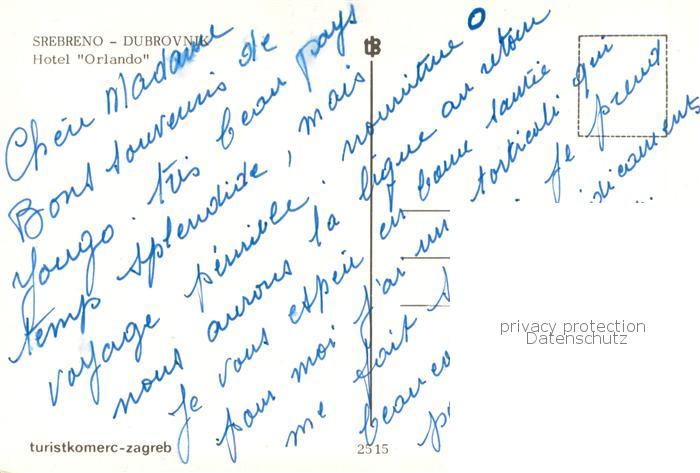 SREBRENO – DUBROVNIK
Hotel "Orlando"
Chère Madame
Bons souvenirs de
Yougo. très beau pays
temp splendide, mais
voyage pénible. nourriture O
nous aurons la ligne au retour
Je vous espère en bonne santée
pour moi j'ai un torticoli qui
me fait Je prend
beauco dicaments
privacy protection
Datenschutz
turistkomerc-zagreb
2515